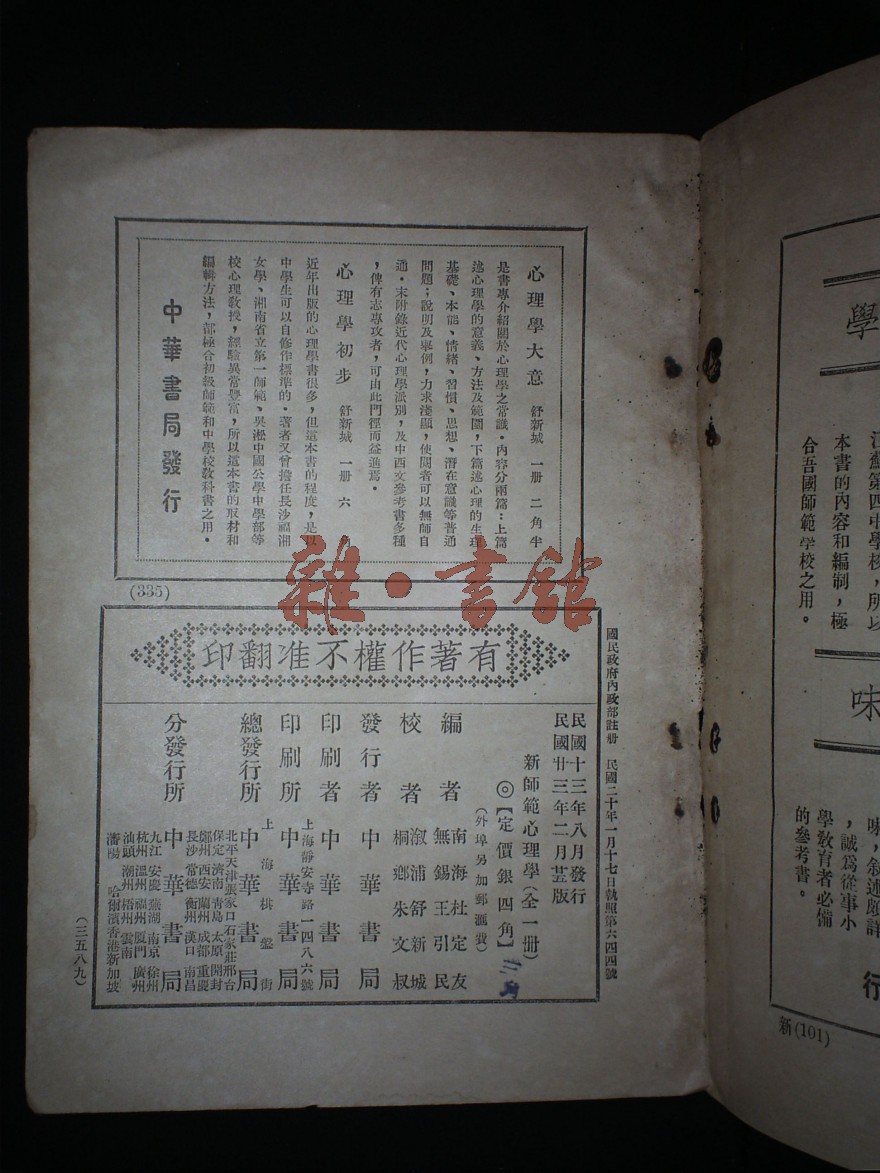 心理學大意 舒新城 一册 二角半
是書專介紹關於心理學之常識・內容分兩篇：上篇
述心理學的意義、方法及範圍，下篇述心理的生理
基礎、本能、情緒、習慣、思想、潛在意識等普通
問題；說明及舉例，力求淺顯，使閱者可以無師自
通・末附錄近代心理學派別，及中西文參考書多種
，俾有志專攻者，可由此門徑而益進焉・
心理學初步 舒新城 一册 六
近年出版的心理學書很多，但這本書的程度，是以
中學生可以自修作標準的・著者又曾擔任長沙福湘
女學、湖南省立第一師範、吳淞中國公學中學部等
校心理敎授，經驗異常豐富，所以這本書的取材和
編輯方法，都極合初級師範和中學校敎科書之用・
中華書局發行
(335)
雜・書館
國民政府內政部註册 民國二十年一月十七日執照第六四四號
有著作權不准翻印
民國十三年八月發行
民國廿三年二月廿版
新師範心理學(全一册)
◎【定價銀四角】
(外埠另加郵滙費)
編者 南海杜定友
無錫王引民
校者 漵浦舒新城
桐鄉朱文叔
發行者 中華書局
印刷者 中華書局
印刷所 上海靜安寺路一四八六號
中華書局
總發行所 上海棋盤街
中華書局
分發行所 中華書局
北平 天津 張家口 石家莊 邢台
保定 濟南 青島 太原 開封
鄭州 西安 蘭州 成都 重慶
長沙 常德 衡州 漢口 南昌
九江 安慶 蕪湖 南京 徐州
杭州 溫州 福州 厦門 廣州
汕頭 潮州 梧州 雲南
瀋陽 哈爾濱 香港 新加坡
(三五八九)
學
江蘇第四中學校，所以
本書的內容和編制，極
合吾國師範學校之用。
味
味，敘述頗詳
，誠爲從事小
學敎育者必備
的參考書。
行
新(101)